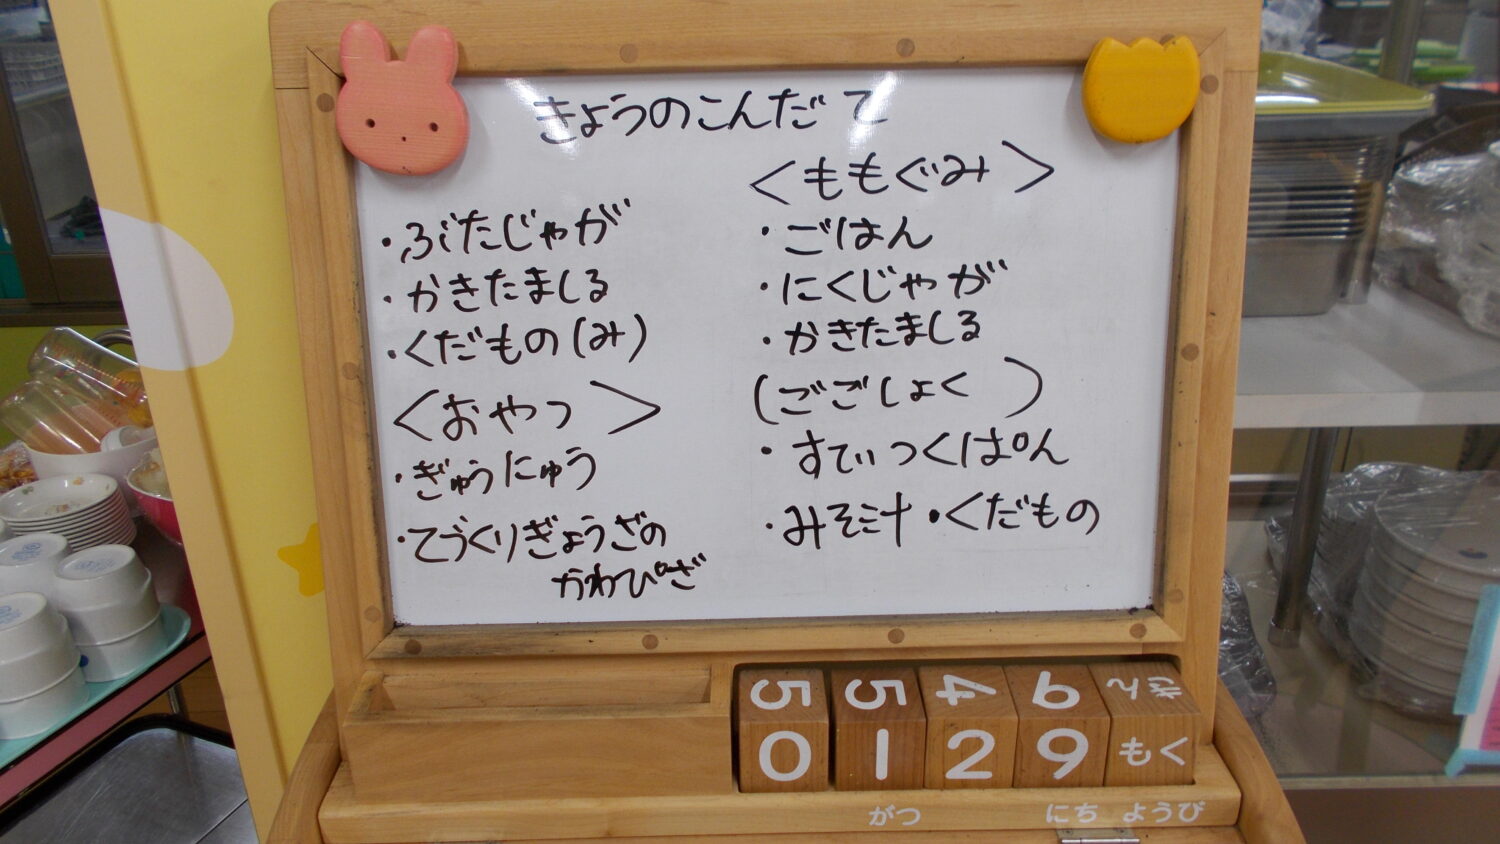 きょうのこんだて
・ぶたじゃが
・かきたましる
・くだもの(み)
<おやつ>
・ぎゅうにゅう
・てづくりぎょうざの
かわぴざ
<ももぐみ>
・ごはん
・にくじゃが
・かきたましる
(ごごしょく)
・すてぃっくぱん
・みそ汁・くだもの
5 5 4 9 きん
0 1 2 9 もく
がつ にち ようび